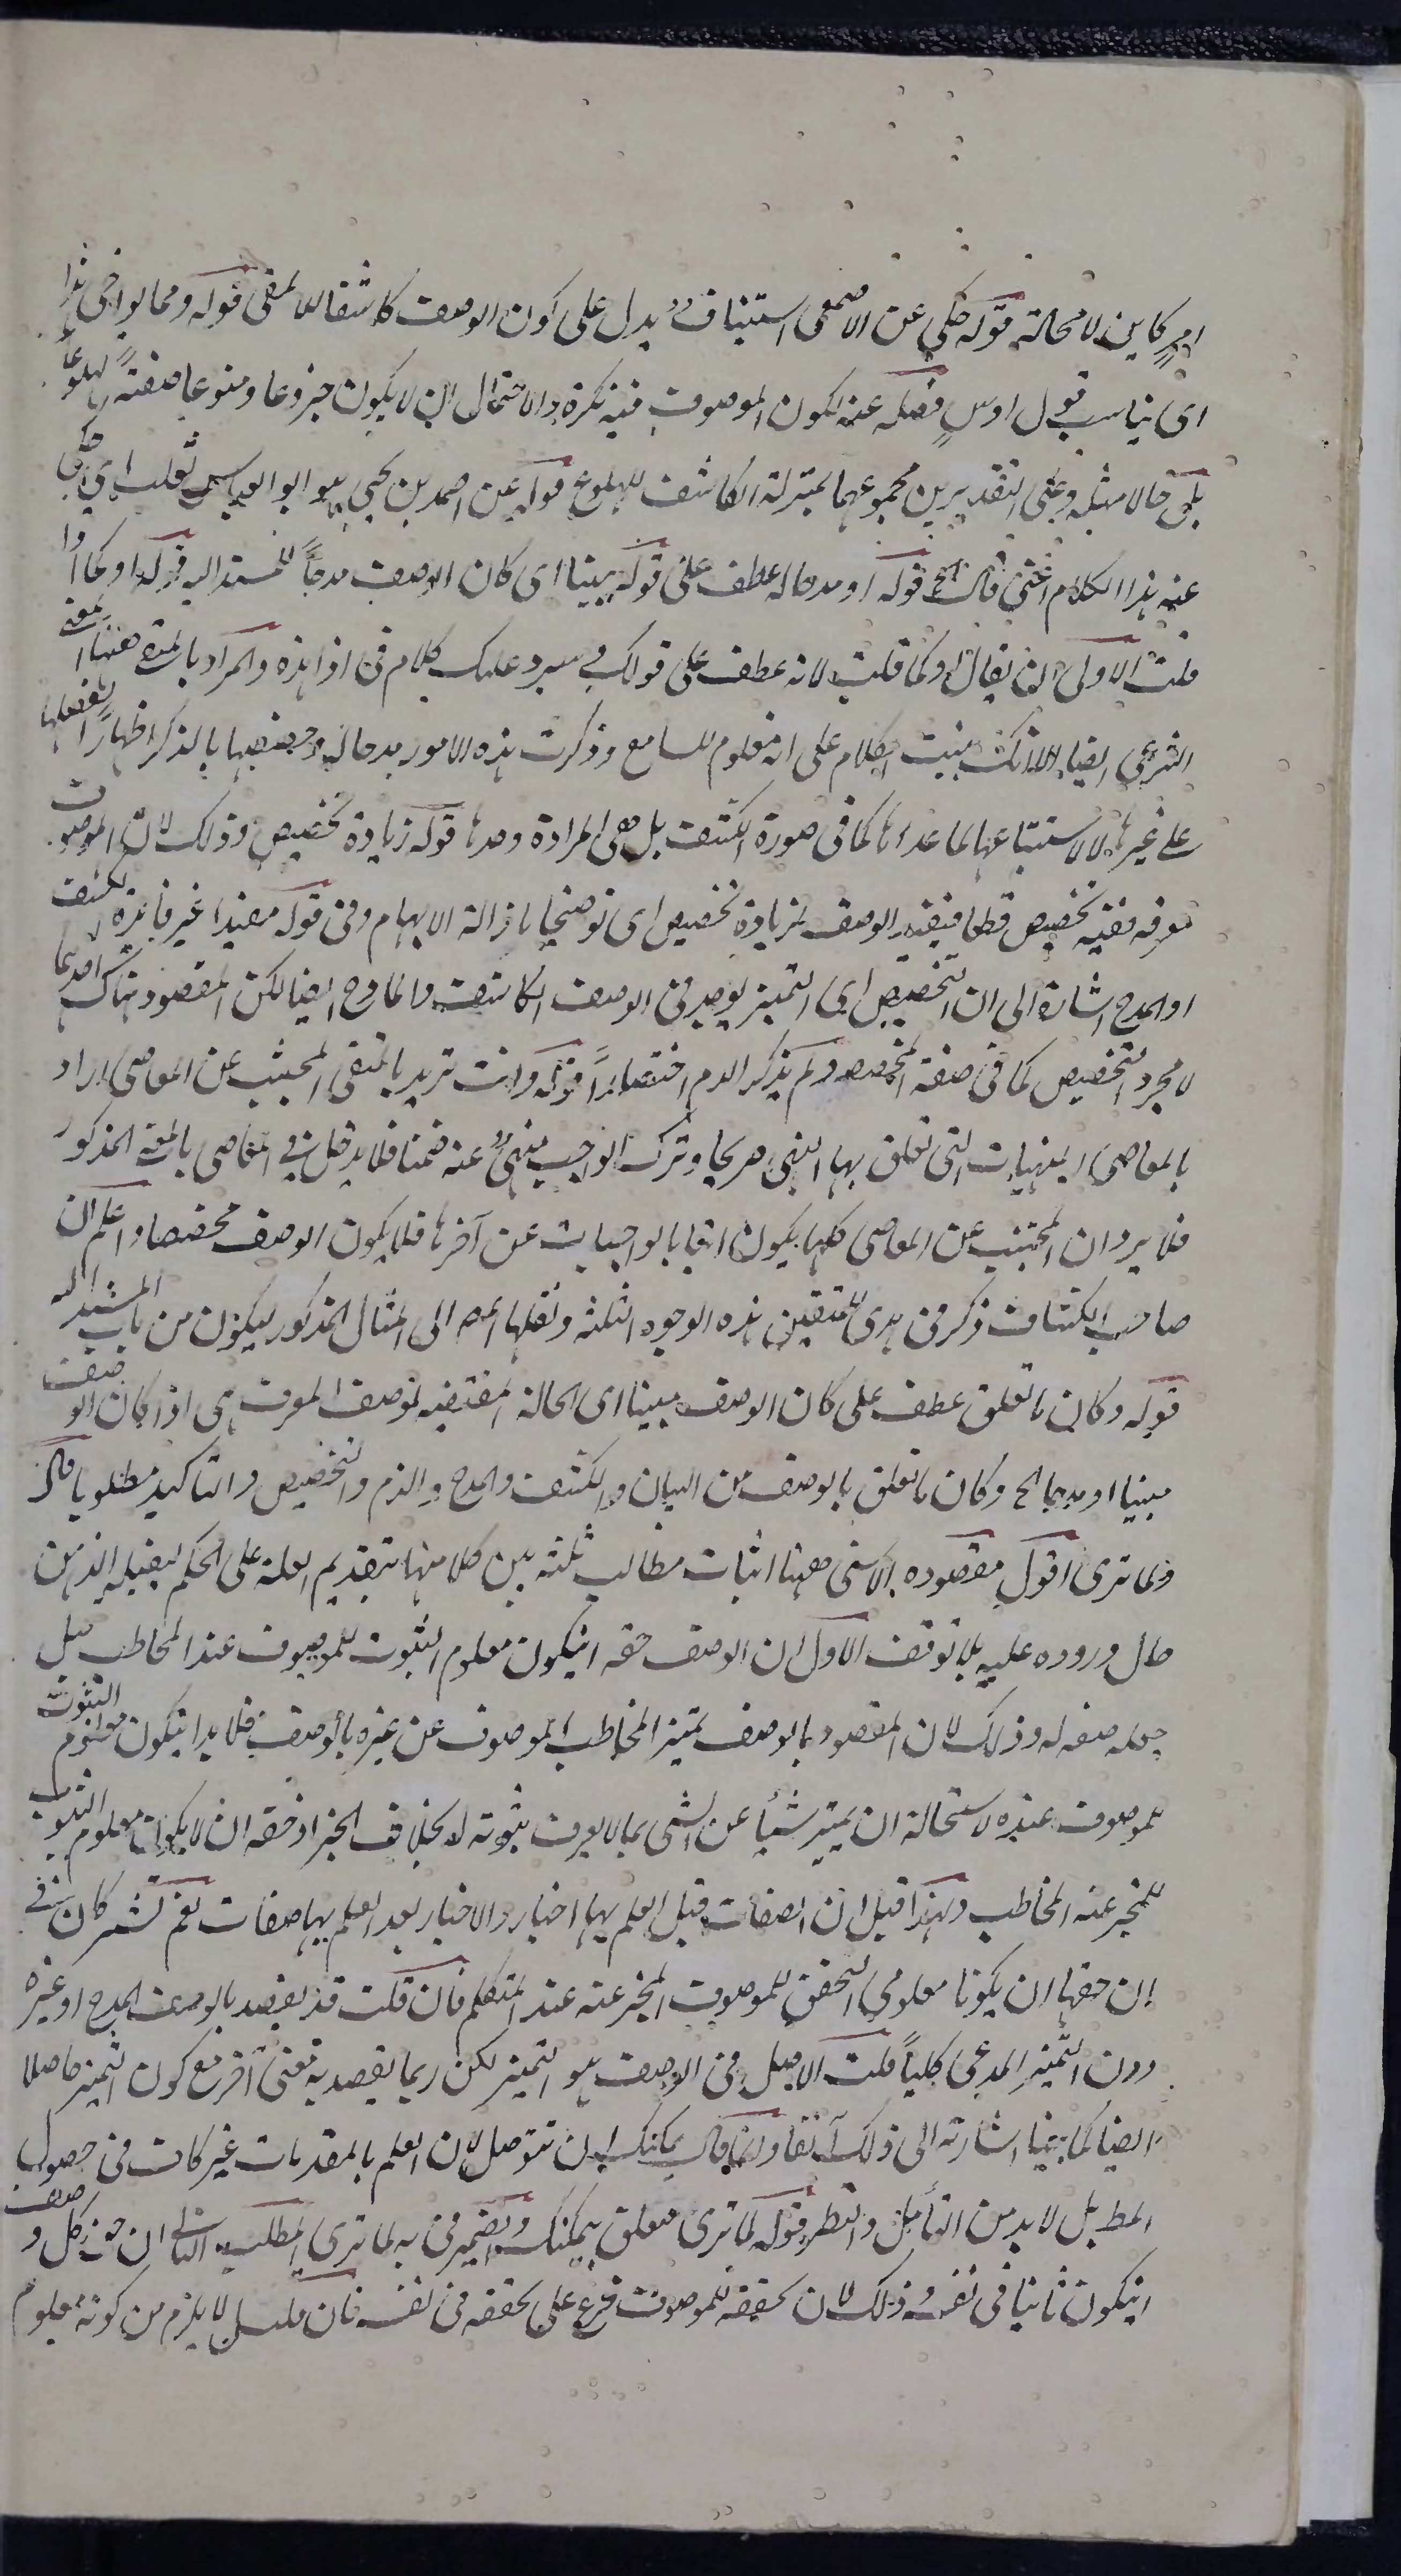 امر كاين لا محالة قوله حكي عن الاصمعي استيناف يدل على كون الوصف كاشفا للمعنى قوله ومما يواخي هذا
اى يناسب قول اوس فصله عنه لكون الموصوف فيه نكرة والاحتمال ان لا يكون جزوعا ومنوعا صفة لهلوعا
بل حالا مثله وعلى التقديرين مجموعهما بمنزلة الكاشف للهلوع قوله عن احمد بن يحيى هو ابو العباس ثعلب اي حكى
عنه هذا الكلام اعنى قال الخ قوله او مدحا له عطف على قوله مبينا اى كان الوصف مدحاً للمسند اليه قوله او كما اذا
قلت الاولى ان يقال او كما قلت لانه عطف على قولك سرد عليك كلام فى اذا هذه والمراد بالمتقى ههنا المعنى
الشرعى ايضا الا انك بنيت الكلام على انه معلوم للسامع وذكرت هذه الامور مدحا له وخصصتها بالذكر اظهارا لفضلها
على غيرها لا لاستتباعها لما عداها كما فى صورة الكشف بل هى المرادة وحدها قوله زيادة تخصيص وذلك لان الموصوف
معرفه ففيه تخصيص قطعا فيفيد الوصف لزيادة تخصيص اى توضيحا بازالة الابهام وفى قوله مفيدا غير فائدة الكشف
او المدح اشارة الى ان التخصيص اى التميز يوجد فى الوصف الكاشف والمادح ايضا لكن المقصود هناك احدهما
لا مجرد التخصيص كما فى صفة المخصص ولم يذكر الذم اختصاراً قوله وانت تريد بالمتقى المجتنب عن المعاصى اراد
بالمعاصى المنهيات التى تعلق بها النهى صريحا وترك الواجب منهى عنه ضمنا فلا يدخل فى المعاصى بالمعنى المذكور
فلا يرد ان المجتنب عن المعاصى كلها يكون اتيا بالواجبات عن آخرها فلا يكون الوصف مخصصا واعلم ان
صاحب الكشاف ذكر فى هدى للمتقين هذه الوجوه الثلثه ونقلها المص الى المثال المذكور ليكون من باب المسند اليه
قوله وكان ما تعلق عطف على كان الوصف مبينا اى الحالة المقتضيه لوصف المعرف هى اذا كان الوصف
مبينا او مدحا الخ وكان ما تعلق بالوصف من البيان والكشف والمدح والذم والتخصيص والتاكيد مطلوبا قال
ولما ترى اقول مقصوده الاسنى ههنا اثبات مطالب ثلثه بين كلا منها بتقديم العلة على الحكم ليقبله الذهن
حال وروده عليه بلا توقف الاول ان الوصف حقه ان يكون معلوم الثبوت للموصوف عند المخاطب قبل
جعله صفه له وذلك لان المقصود بالوصف تميز المخاطب الموصوف عن غيره بالوصف فلا بد ان يكون معلوم الثبوت
للموصوف عنده لاستحالة ان يميز شيأ عن الشى بما لا يعرف ثبوته له بخلاف الخبر اذ حقه ان لا يكون معلوم الثبوت
للمخبر عنه المخاطب ولهذا قيل ان الصفات قبل العلم بها اخبار والاخبار بعد العلم بها صفات نعم يشتركان فى
ان حقهما ان يكونا معلومي التحقق للموصوف المخبر عنه عند المتكلم فان قلت قد يقصد بالوصف المدح او غيره
دون التميز المدعى كلياً قلت الاصل فى الوصف هو التميز لكن ربما يقصد به معنى آخر مع كون التميز حاصلا
ايضا كما بينا اشارته الى ذلك آنفا وانما قال يمكنك ان تتوصل لان العلم بالمقدمات غير كاف فى حصول
المط بل لا بد من التأمل والنظر قوله لما ترى متعلق بيمكنك والضمير فى به لما ترى المطلب الثانى ان حق كل وصف
ان يكون ثابتا فى نفسه وذلك لان تحققه للموصوف فرع على تحققه فى نفسه فان قلت لا يلزم من كونه معلوم